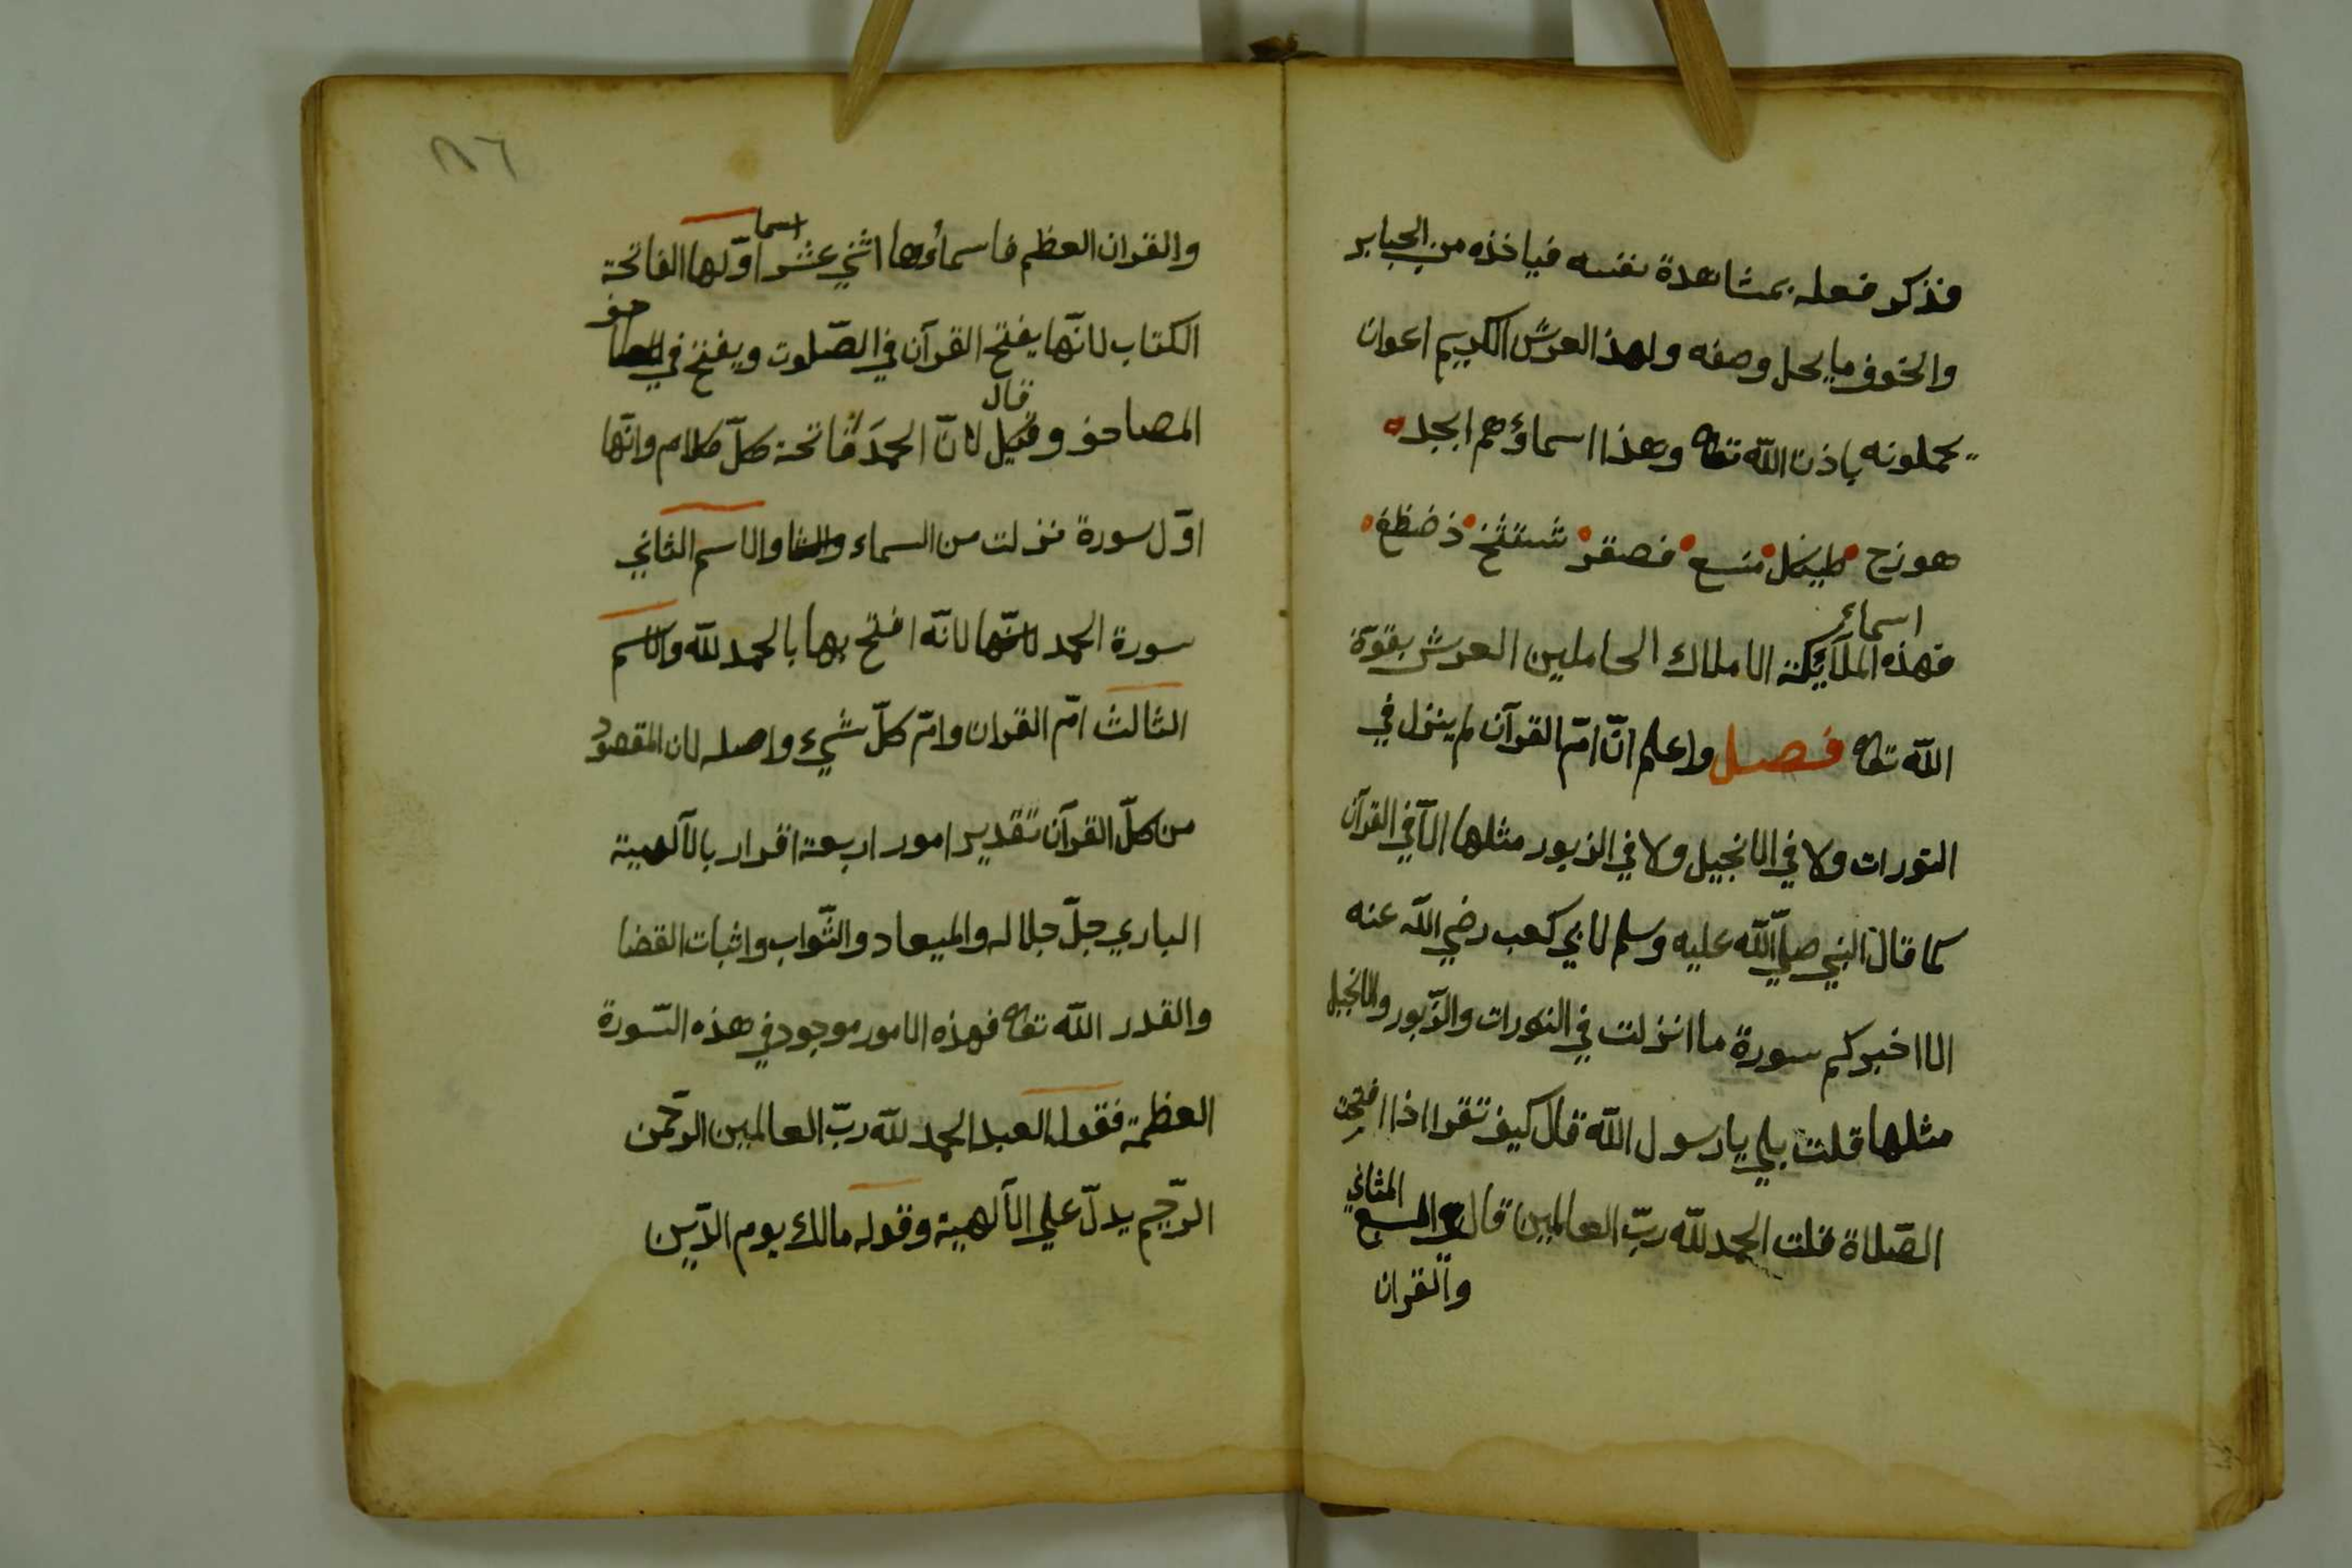 فذكر فعله بمشاهدة نفسه فياخذه من الجبابر
والخوف ما يحل وصفه ولهذا العرش الكريم اعوان
يحملونه باذن الله تعالى وهذا اسماؤهم ابجد
هوزح طيكل منسع فصقر شتثخ ذضظغ
اسماء
فهذه الملآيكة الاملاك الحاملين العرش بقوّة
الله تعالى فصل واعلم انّ امّ القرآن لم ينزل في
التورات ولا في الانجيل ولا في الزبور مثلها الّا في القرآن
كما قال النبي صلي الله عليه وسلم لابي كعب رضي الله عنه
الا اخبركم سورة ما انزلت في التورات والزّبور والانجيل
مثلها قلت بلي يا رسول الله قال كيف تقرا اذا افتحت
الصّلاة قلت الحمد لله ربّ العالمين قال السبع المثاني
والقران
١٨٦
والقران العظيم فاسماؤها اثني عشر اسما اوّلها الفاتحة
الكتاب لانّها يفتح القرآن في الصّلوت ويفتح في
المصاحف وقيل قال لانّ الحمدَ فاتحة كلّ كلام وانّها
اوّل سورة نزلت من السماء والاسم الثاني
سورة الحمد لانّه افتتح بها بالحمد لله والاسم
الثالث امّ القران وامّ كلّ شيء واصله لان المقصود
من كلّ القرآن تقدير امور اربعة اقرار بالآلهية
الباري جلّ جلاله والميعاد والثّواب واثبات القضا
والقدر الله تعالى فهذه الامور موجود في هذه السّورة
العظمة فقوله العبد الحمد لله ربّ العالمين الرحّمن
الرحّيم يدلّ علي الآلهية وقوله مالك يوم الدّين